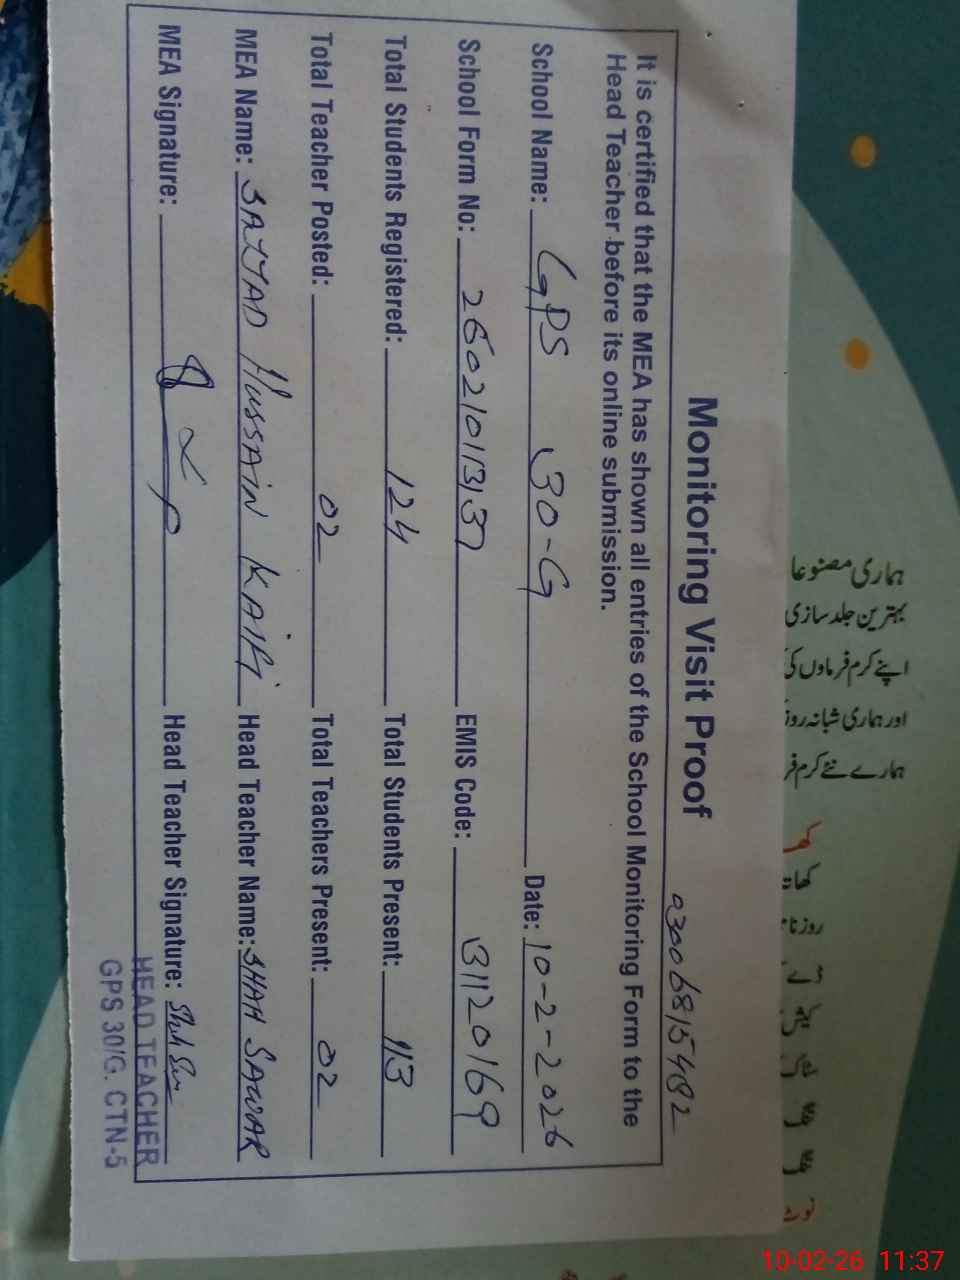 Monitoring Visit Proof
03006815482
It is certified that the MEA has shown all entries of the School Monitoring Form to the
Head Teacher before its online submission.
School Name: GPS 30-G Date: 10-2-2026
School Form No: 260210113137 EMIS Code: 31120169
Total Students Registered: 124 Total Students Present: 113
Total Teacher Posted: 02 Total Teachers Present: 02
MEA Name: SAJJAD HUSSAIN Head Teacher Name: SHAH SAWAR
MEA Signature: Head Teacher Signature:
HEAD TEACHER
GPS 30/G. CTN-5
ہماری مصنوعا
بہترین جلد سازی
اپنے کرم فرماوں کی
اور ہماری شبانہ روز
ہمارے نئے کرم فر
10-02-26 11:37